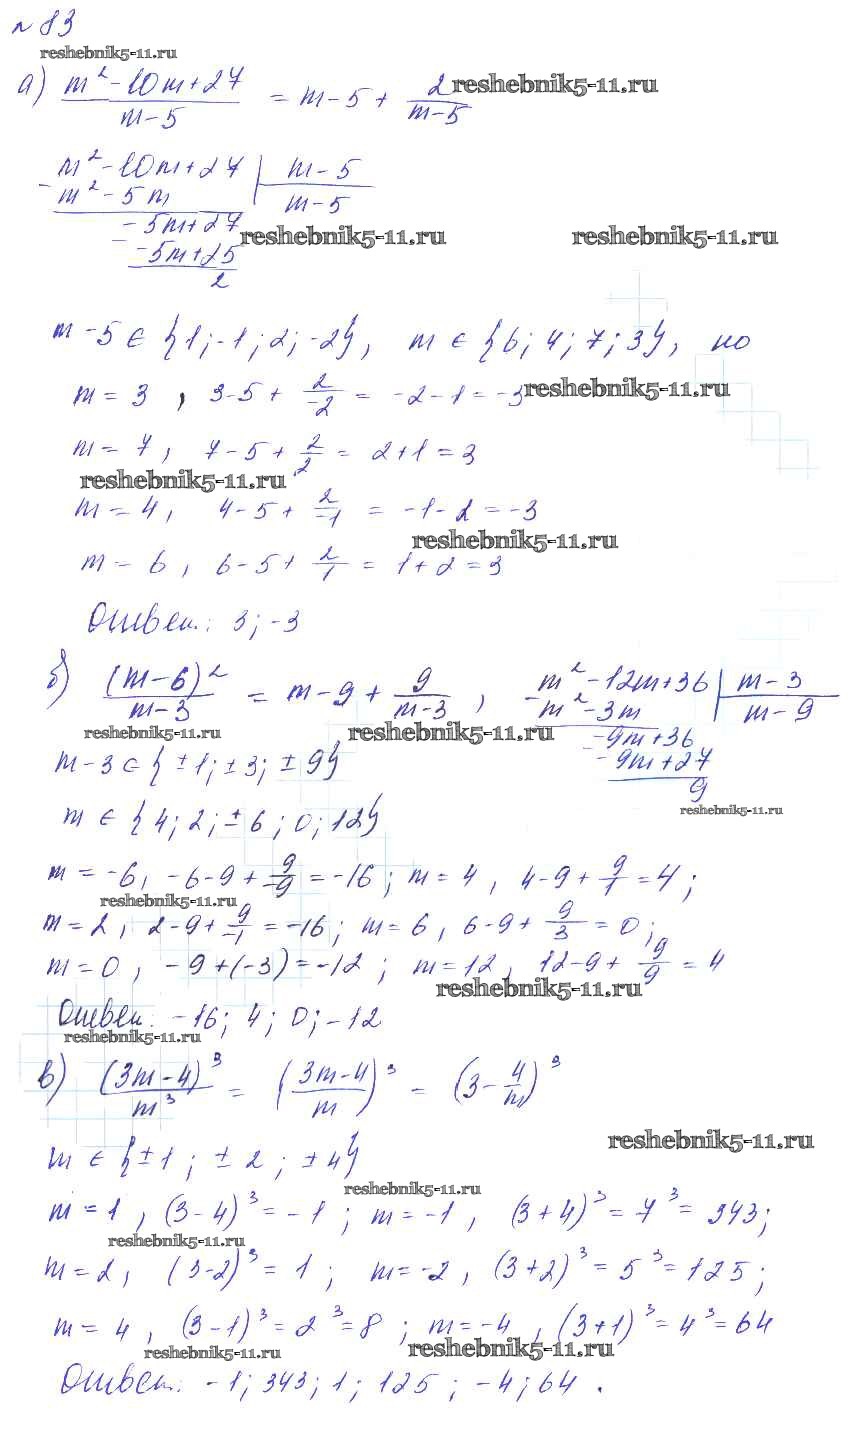 №83
reshebnik5-11.ru
а) (m² - 10m + 27)/(m - 5) = m - 5 + 2/(m - 5) reshebnik5-11.ru
- m² - 10m + 27 | m - 5
m² - 5m | m - 5
- -5m + 27
-5m + 25
2
reshebnik5-11.ru reshebnik5-11.ru
m - 5 ∈ {1; -1; 2; -2}, m ∈ {6; 4; 7; 3}, но
m = 3, 3 - 5 + 2/-2 = -2 - 1 = -3 reshebnik5-11.ru
m = 7, 7 - 5 + 2/2 = 2 + 1 = 3
reshebnik5-11.ru
m = 4, 4 - 5 + 2/-1 = -1 - 2 = -3
reshebnik5-11.ru
m = 6, 6 - 5 + 2/1 = 1 + 2 = 3
Ответ: 3; -3
б) (m - 6)²/(m - 3) = m - 9 + 9/(m - 3),
- m² - 12m + 36 | m - 3
m² - 3m | m - 9
-9m + 36
- -9m + 27
9
reshebnik5-11.ru reshebnik5-11.ru
m - 3 ∈ {±1; ±3; ±9}
reshebnik5-11.ru
m ∈ {4; 2; ±6; 0; 12}
m = -6, -6 - 9 + 9/-9 = -16; m = 4, 4 - 9 + 9/1 = 4;
reshebnik5-11.ru
m = 2, 2 - 9 + 9/-1 = -16; m = 6, 6 - 9 + 9/3 = 0;
m = 0, -9 + (-3) = -12; m = 12, 12 - 9 + 9/9 = 4
reshebnik5-11.ru
Ответ: -16; 4; 0; -12
reshebnik5-11.ru
в) (3m - 4)³/m³ = ((3m - 4)/m)³ = (3 - 4/m)³
reshebnik5-11.ru
m ∈ {±1; ±2; ±4}
reshebnik5-11.ru
m = 1, (3 - 4)³ = -1; m = -1, (3 + 4)³ = 7³ = 343;
reshebnik5-11.ru
m = 2, (3 - 2)³ = 1; m = -2, (3 + 2)³ = 5³ = 125;
m = 4, (3 - 1)³ = 2³ = 8; m = -4, (3 + 1)³ = 4³ = 64
reshebnik5-11.ru reshebnik5-11.ru
Ответ: -1; 343; 1; 125; -4; 64.